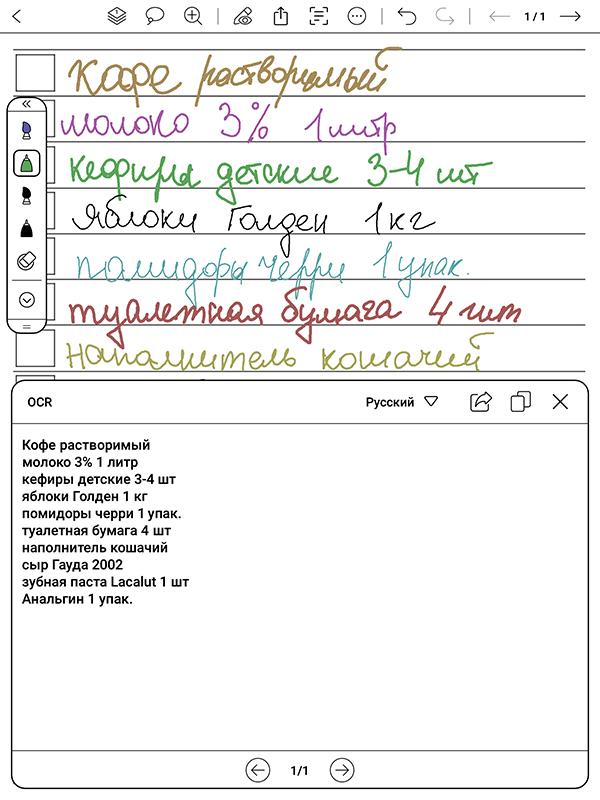 1/1
Кофе растворимый
молоко 3% 1 литр
кефиры детские 3-4 шт
яблоки Голден 1 кг
памидоры черри 1 упак.
туалетная бумага 4 шт
наполнитель кошачий
OCR Русский
Кофе растворимый
молоко 3% 1 литр
кефиры детские 3-4 шт
яблоки Голден 1 кг
помидоры черри 1 упак.
туалетная бумага 4 шт
наполнитель кошачий
сыр Гауда 2002
зубная паста Lacalut 1 шт
Анальгин 1 упак.
1/1